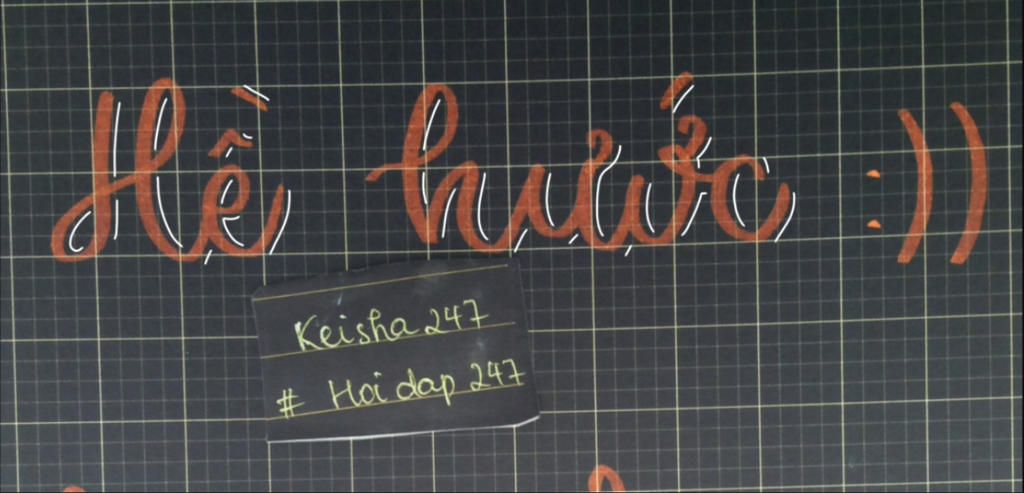 Hề hước :))
Keisha 247
# Hoi dap 247